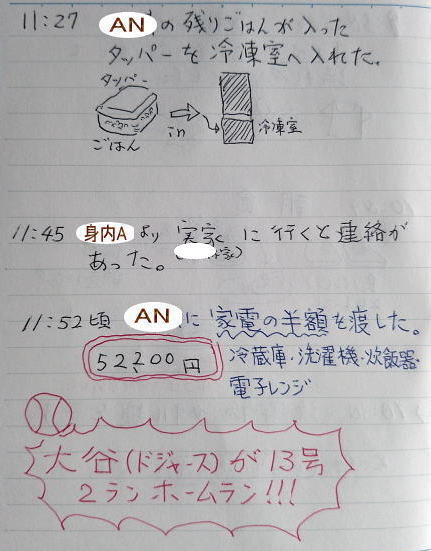 11:27 AN の残りごはんが入った
タッパーを冷凍室へ入れた。
タッパー
ごはん
in
冷凍室
11:45 身内A より 実家 に行くと連絡が
家)
あった。
11:52頃 AN に家電の半額を渡した。
52,200円
冷蔵庫・洗濯機・炊飯器・
電子レンジ
大谷(ドジャース)が13号
2ランホームラン!!!